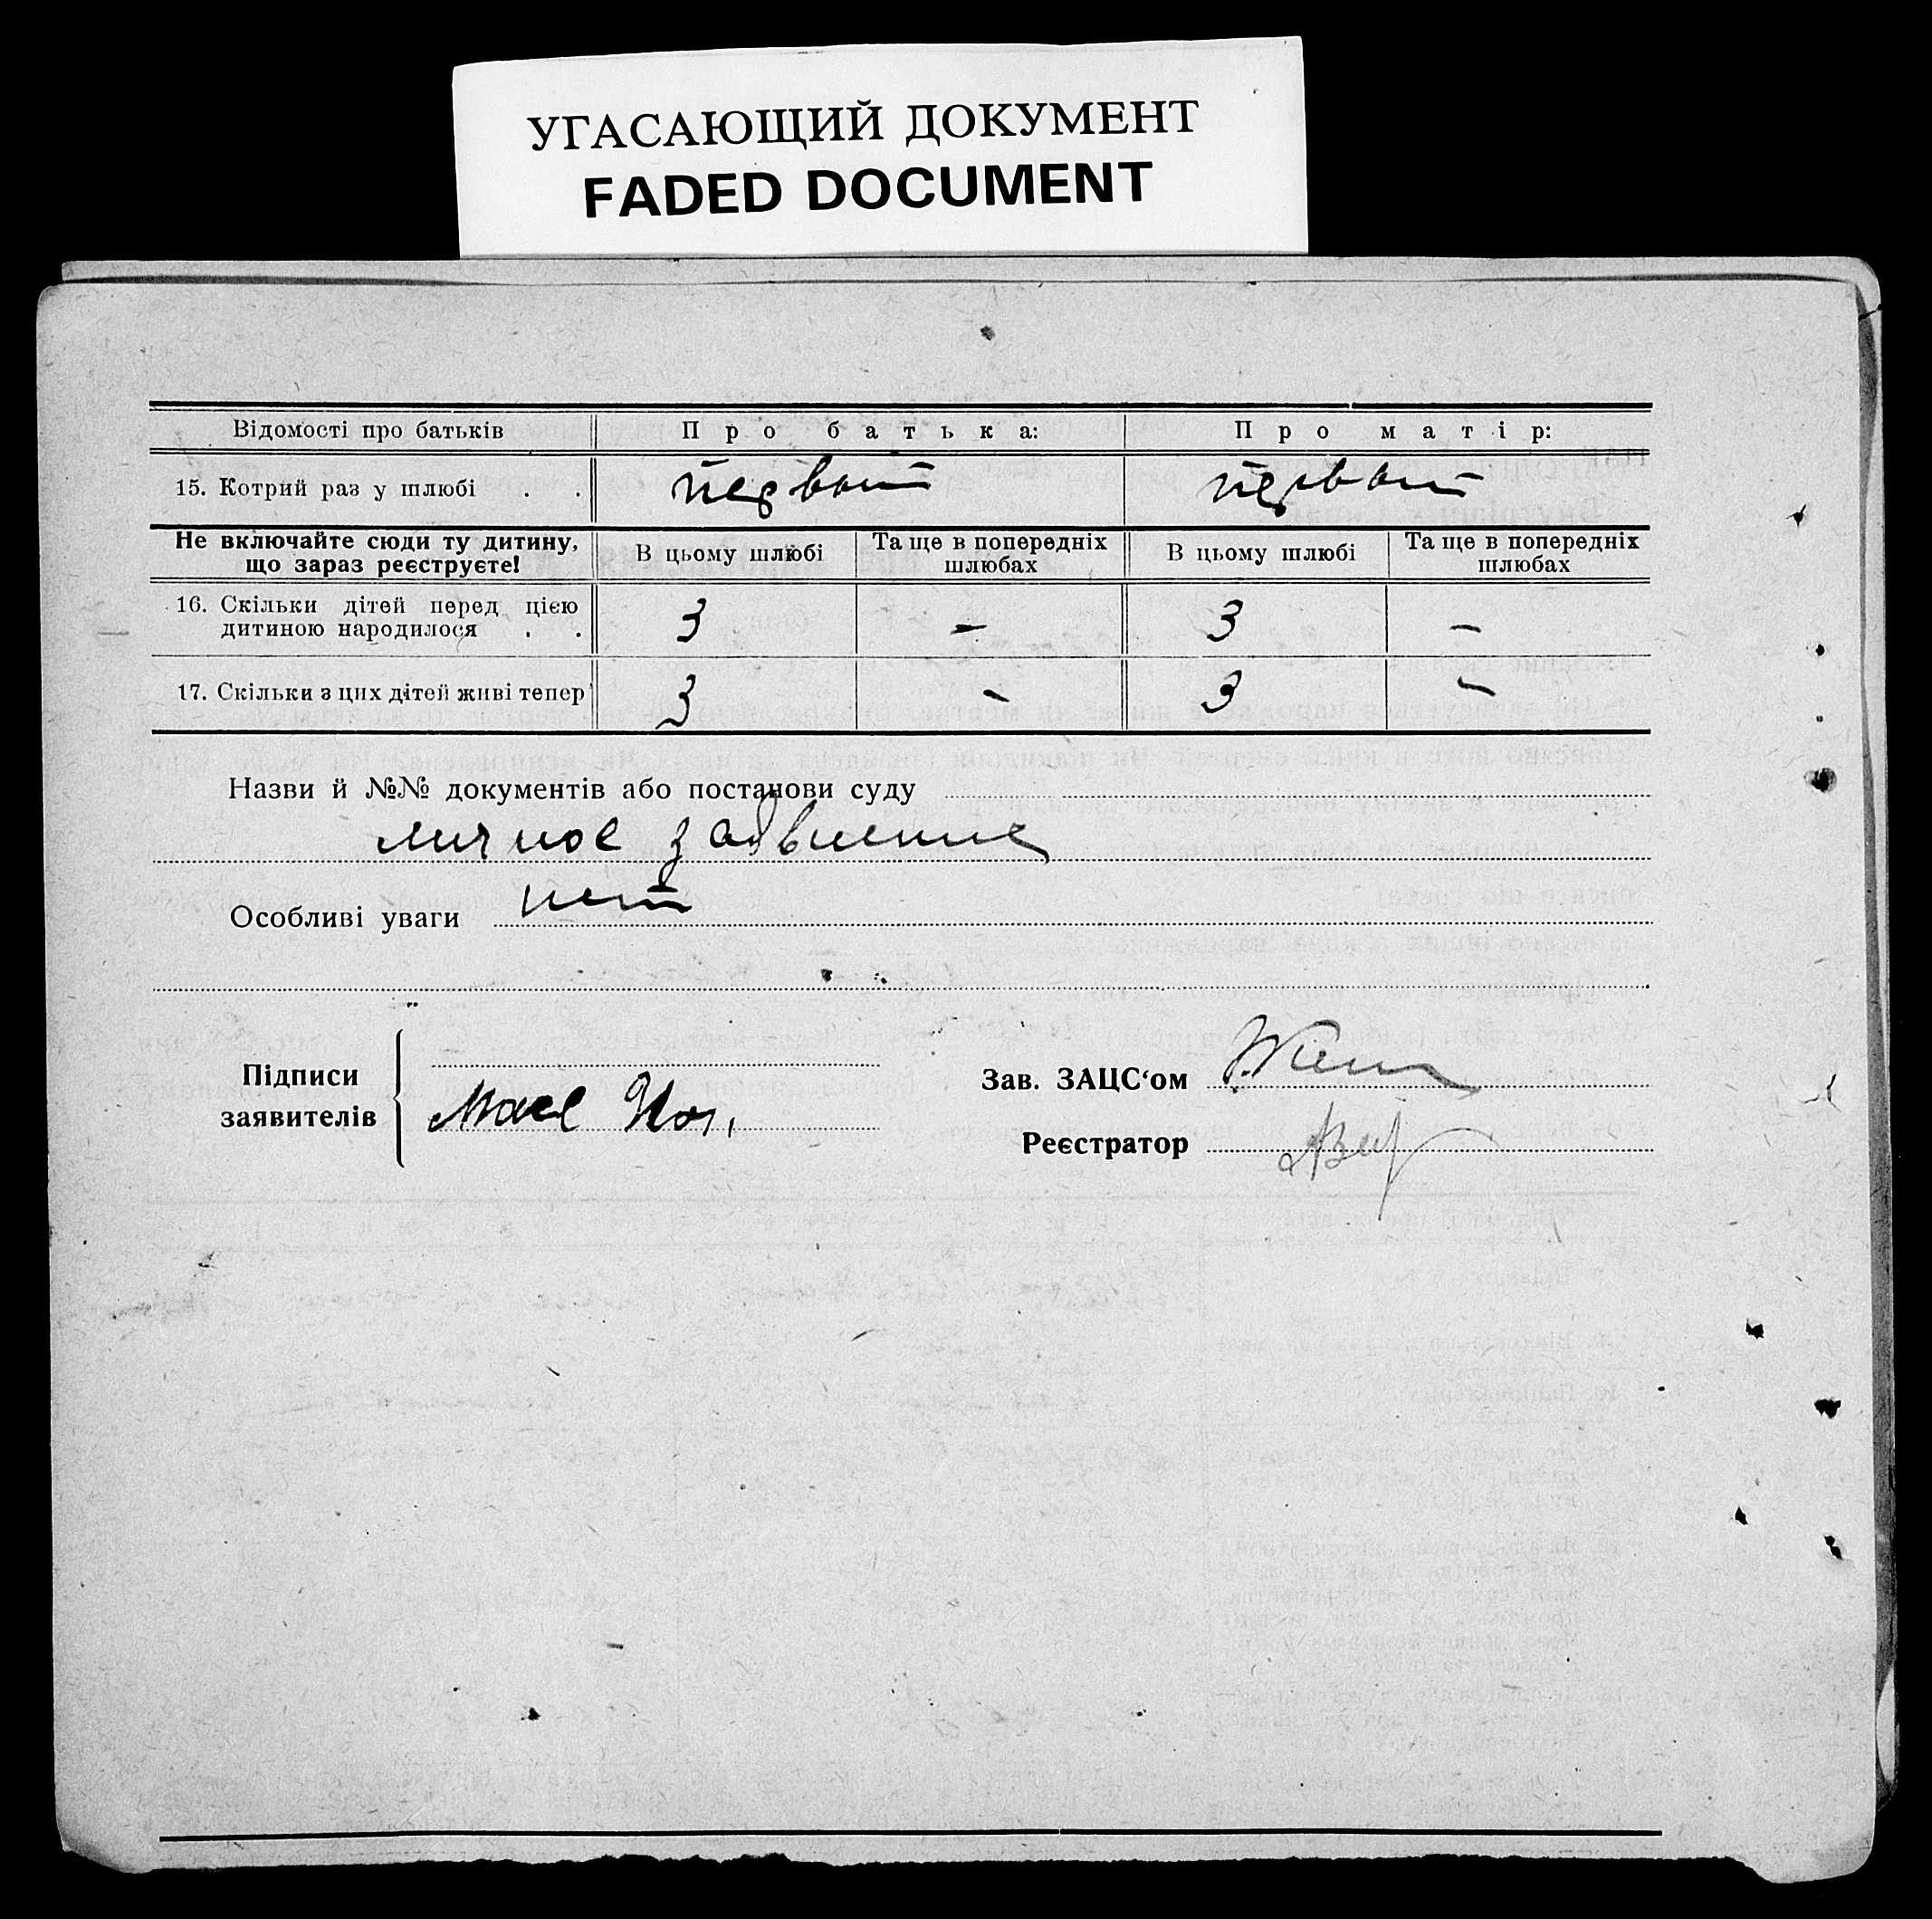 УГАСАЮЩИЙ ДОКУМЕНТ
FADED DOCUMENT
Відомості про батьків Про батька: Про матір:
15. Котрий раз у шлюбі . . первый первый
Не включайте сюди ту дитину, що зараз реєструєте! В цьому шлюбі Та ще в попередніх шлюбах В цьому шлюбі Та ще в попередніх шлюбах
16. Скільки дітей перед цією
дитиною народилося . . 3 – 3 –
17. Скільки з цих дітей живі тепер 3 - 3 -
Назви й №№ документів або постанови суду
личное заявление
Особливі уваги нет
Підписи
заявителів
Зав. ЗАЦС‘ом
Реєстратор